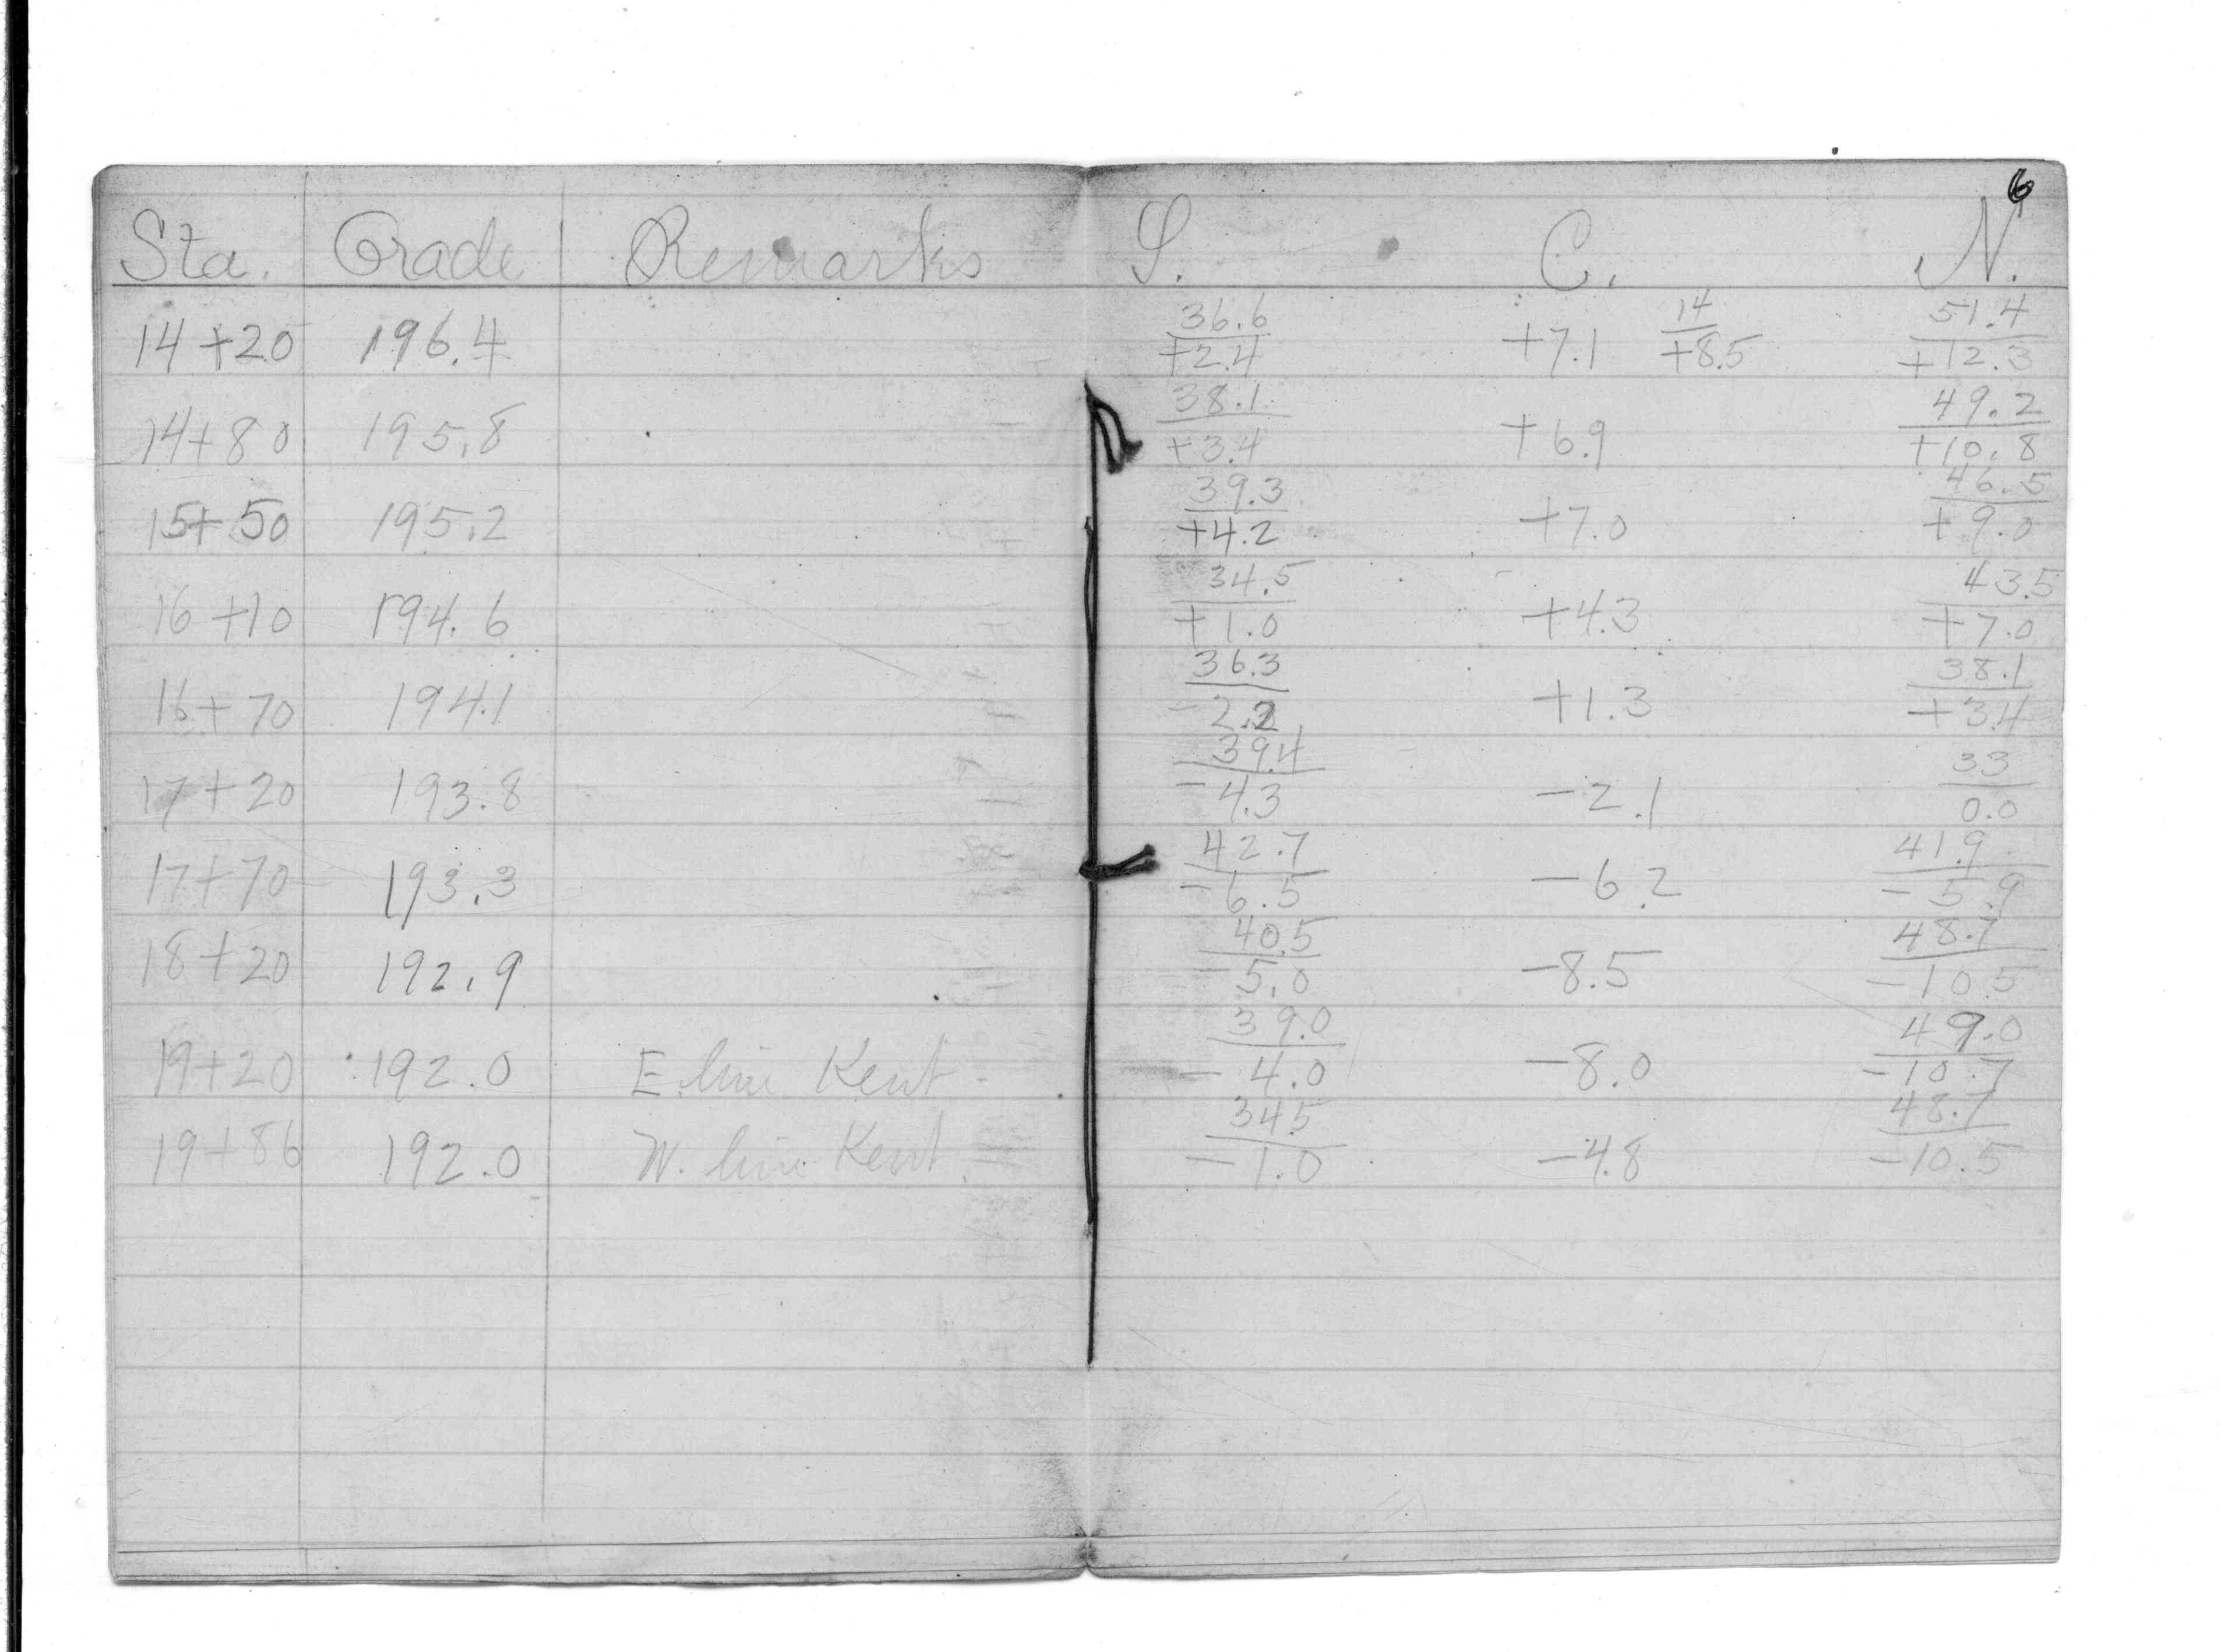 6
Sta. Grade Remarks S. C. N.
36.6 14 51.4
14+20 196.4 +2.4 +7.1 +8.5 +12.3
38.1 49.2
14+80 195.8 +3.4 +6.9 +10.8
39.3 46.5
15+50 195.2 +4.2 +7.0 +9.0
34.5 43.5
16+10 194.6 +1.0 +4.3 +7.0
36.3 38.1
16+70 194.1 -2.2 +1.3 +3.4
39.4 33
17+20 193.8 -4.3 -2.1 0.0
42.7 41.9
17+70 193.3 -6.5 -6.2 -5.9
40.5 48.7
18+20 192.9 -5.0 -8.5 -10.5
39.0 49.0
19+20 192.0 E. line Kent -4.0 -8.0 -10.7
34.5 48.7
19+86 192.0 W. line Kent -1.0 -4.8 -10.5